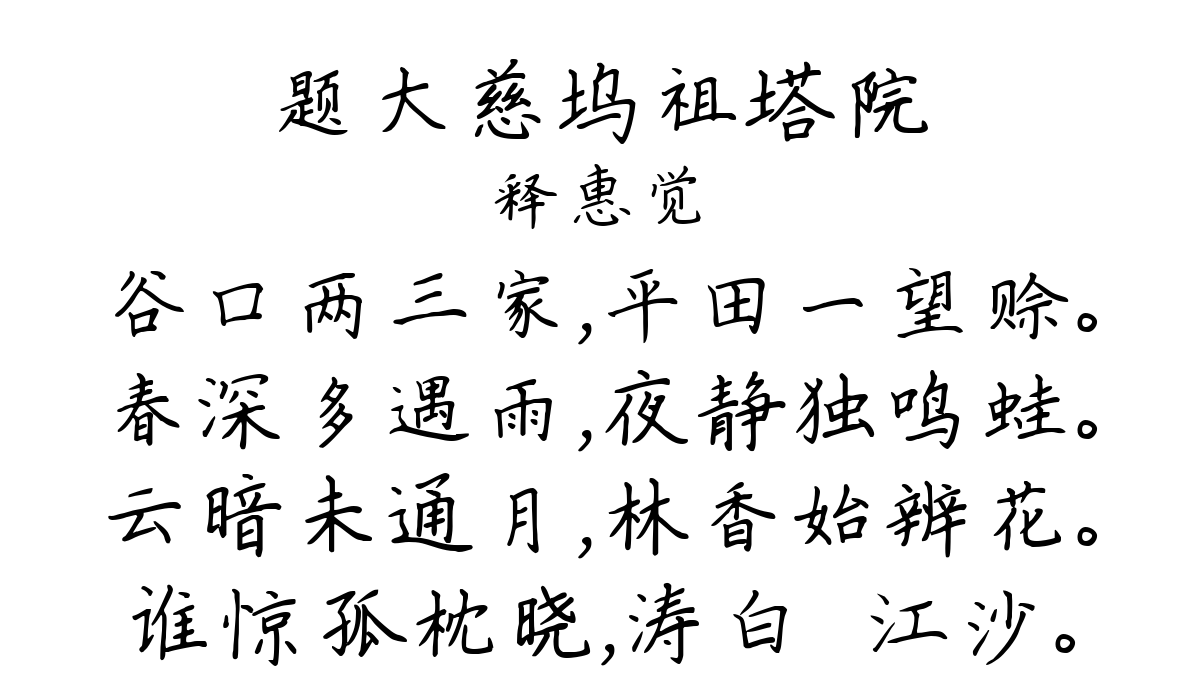 题大慈坞祖塔院
释惠觉
谷口两三家,平田一望赊。
春深多遇雨,夜静独鸣蛙。
云暗未通月,林香始辨花。
谁惊孤枕晓,涛白 江沙。